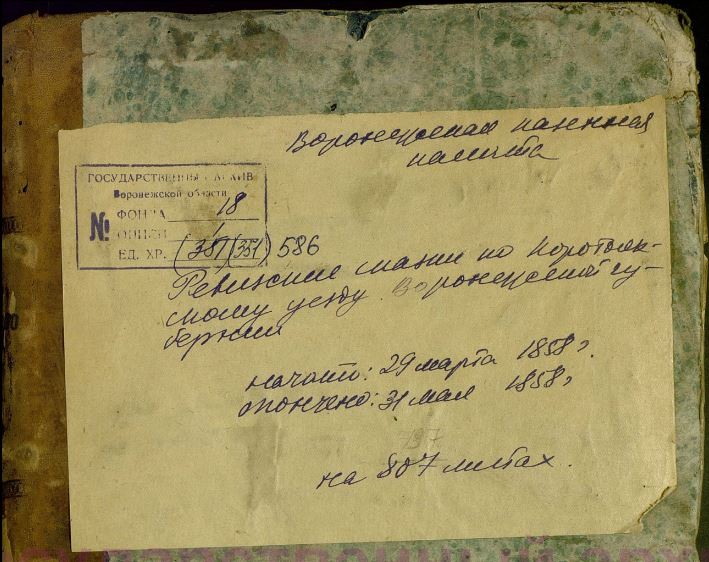 Воронежская казенная
палата
ГОСУДАРСТВЕННЫЙ АРХИВ
Воронежской области
№
ФОНДА 18
ОПИСИ 1
ЕД. ХР. (381)(351) 586
Ревизские сказки по Коротояк-
скому уезду Воронежской гу-
бернии
начато: 29 марта 1858 г.
окончено: 31 мая 1858 г.
на 807 листах.